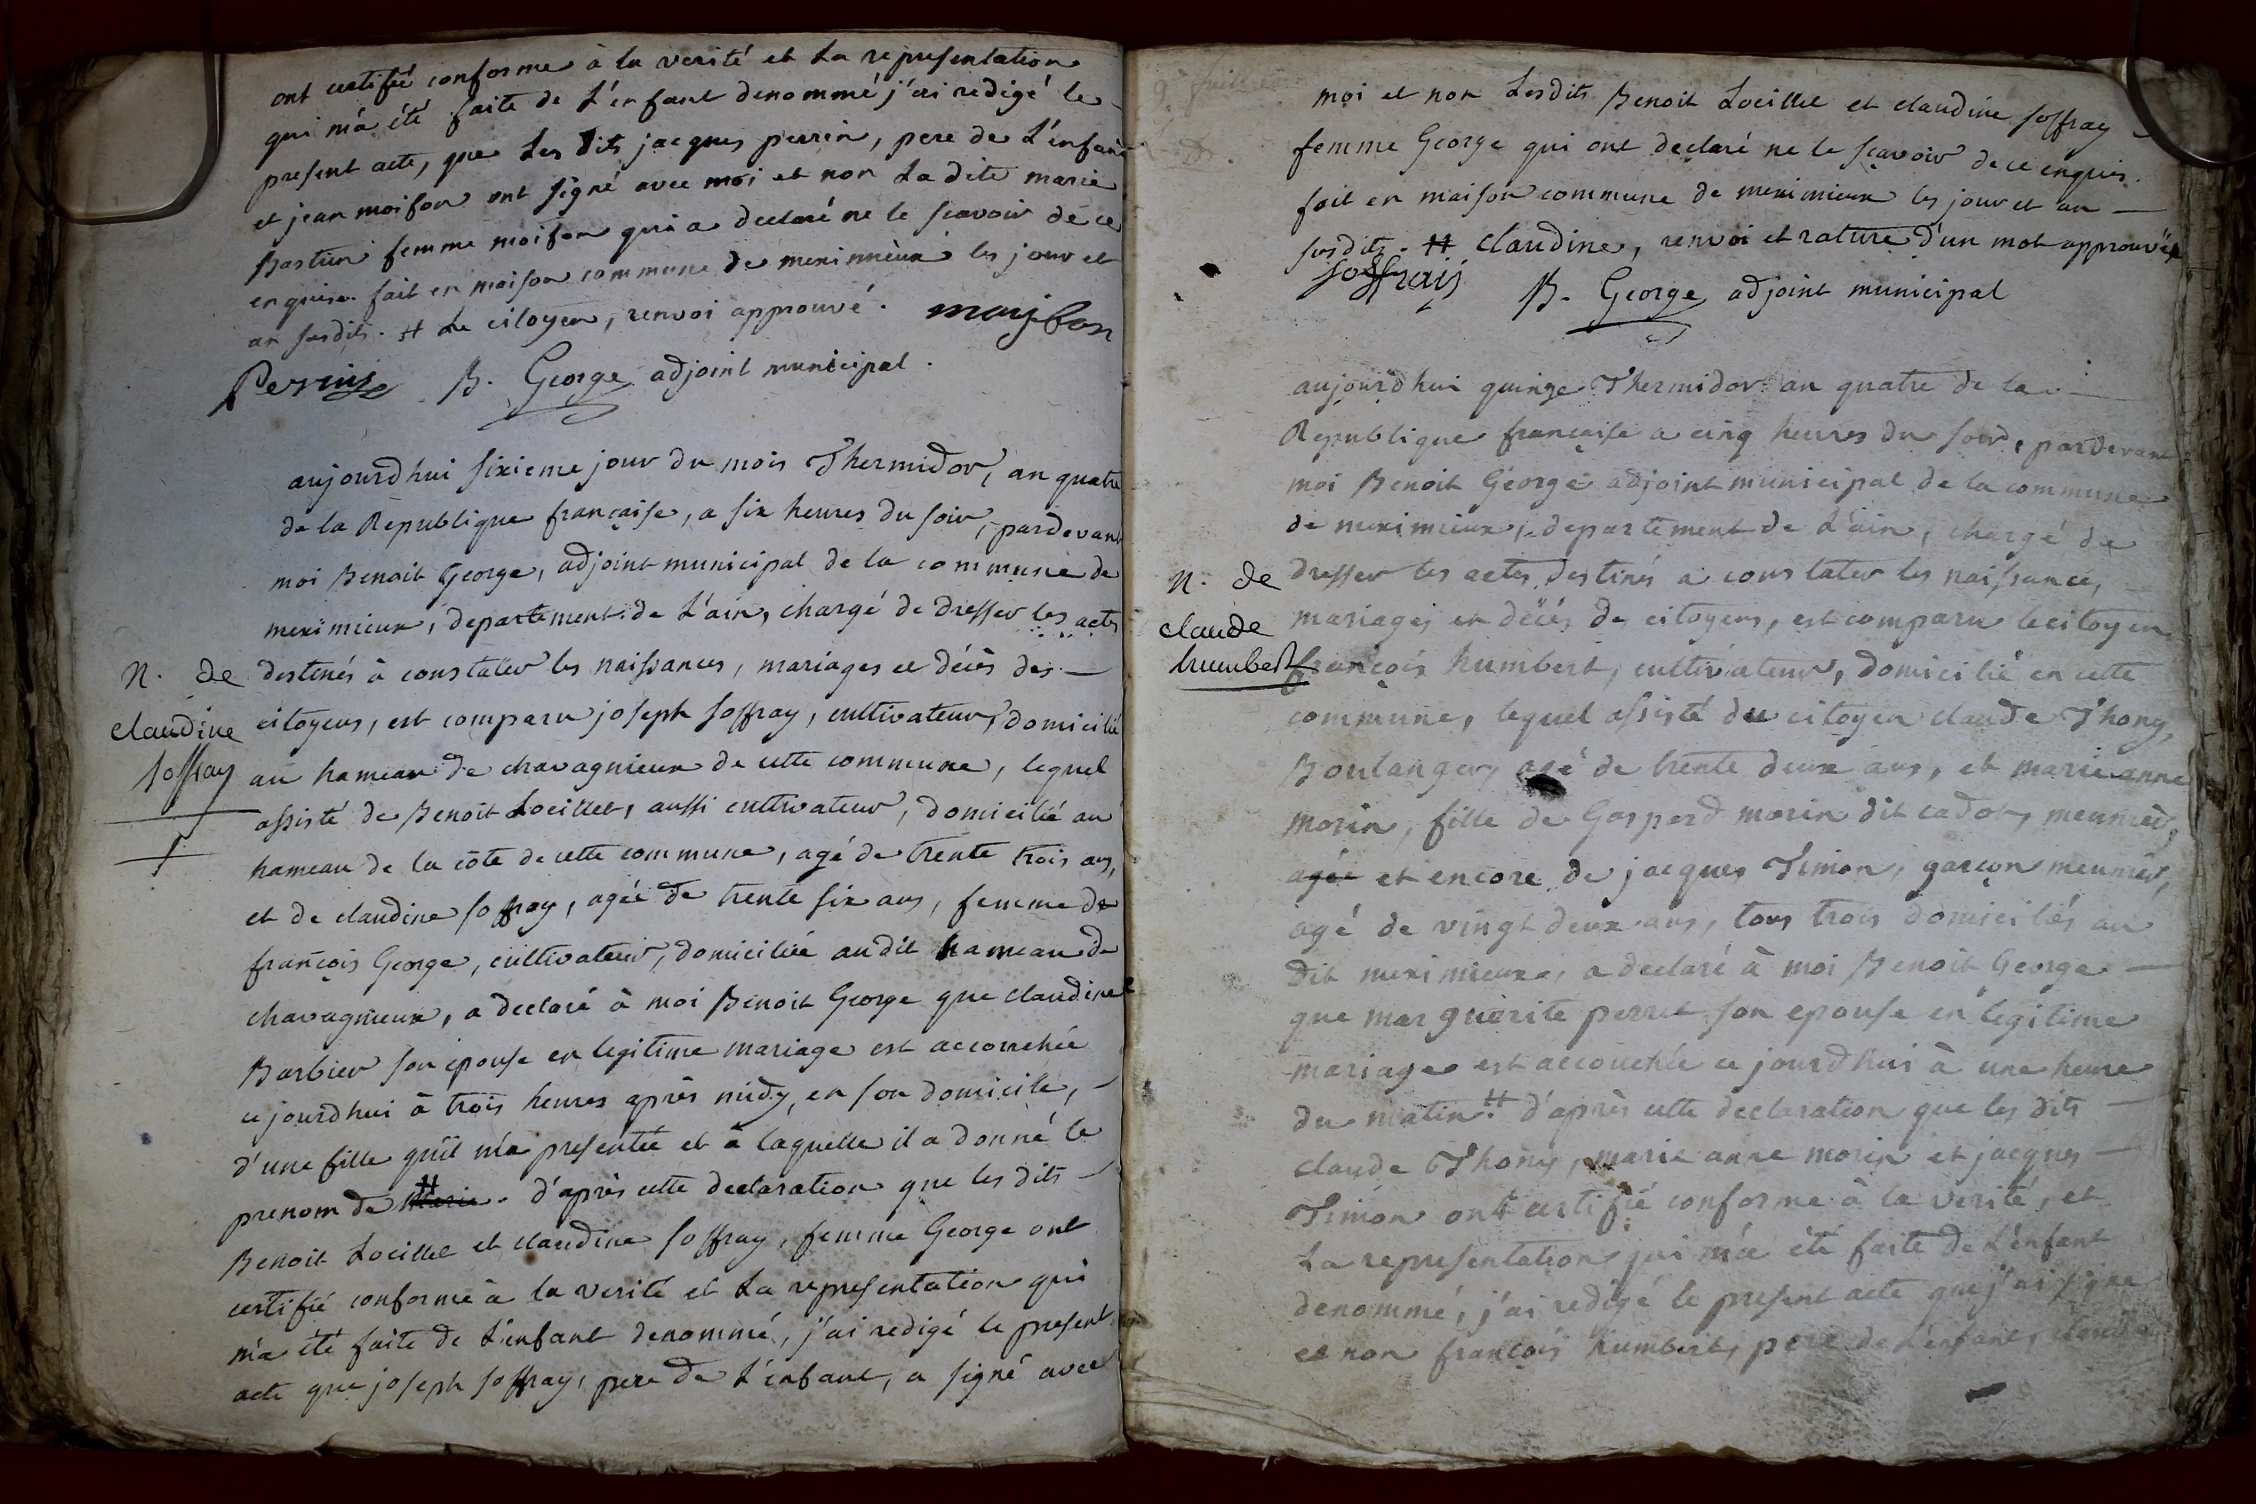 ont certifié conforme à la verité et La representation
qui m'a été faite de L'enfant denommé j'ai redigé le
present acte, que Les dits jacques perrin, pere de L'enfant
et jean moison ont signé avec moi et non La dite marie
Bastien femme moison qui a declaré ne le scavoir de ce
enquise. fait en maison commune de meximieux les jour et
an susdits. # Le citoyen, renvoi approuvé. moyson
Perrin B. George adjoint municipal.
aujourdhui sixieme jour du mois Thermidor, an quatre
de la Republique française, a six heures du soir, pardevant
moi Benoit George, adjoint municipal de la commune de
meximieux, departement de L'ain, chargé de dresser les actes
destinés à constater les naissances, mariages et décès des
N. de
claudine
soffray
citoyens, est comparu joseph soffray, cultivateur, domicilié
au hameau de chavagnieux de cette commune, lequel
assisté de Benoit Loeillet, aussi cultivateur, domicilié au
hameau de la côte de cette commune, agé de trente trois ans,
et de claudine soffray, agée de trente six ans, femme de
françois George, cultivateur, domiciliée audit hameau de
chavagnieux, a declaré à moi Benoit George que claudine
Barbier son epouse en legitime mariage est accouchée
ce jourdhui à trois heures après midy, en son domicile,
d'une fille qu'il m'a presentée et à laquelle il a donné le
prenom de # marie. d'après cette declaration que les dits
Benoit Loeillet et claudine soffray, femme George ont
certifié conforme à la verité et La representation qui
m'a été faite de L'enfant denommé, j'ai redigé le present
acte que joseph soffray, pere de L'enfant, a signé avec
moi et non Lesdits Benoit Loeillet et claudine soffray
femme George qui ont declaré ne le scavoir de ce enquis.
fait en maison commune de meximieux les jour et an
susdits. # claudine, renvoi et rature d'un mot approuvés
soffrais B. George adjoint municipal
aujourdhui quinze Thermidor an quatre de la
Republique française a cinq heures du soir, pardevant
moi Benoit George adjoint municipal de la commune
de meximieux, departement de L'ain, chargé de
N. de
claude
humbert
dresser les actes destinés a constater les naissances,
mariages et décès des citoyens, est comparu le citoyen
françois humbert, cultivateur, domicilié en cette
commune, lequel assisté du citoyen claude Thony,
Boulanger, agé de trente deux ans, et marie anne
morin, fille de Gaspard morin dit cadot, meunier,
agée et encore de jacques Timon, garçon meunier,
agé de vingt deux ans, tous trois domiciliés au
dit meximieux, a declaré à moi Benoit George
que marguerite perret son epouse en legitime
mariage est accouchée ce jourdhui à une heure
du matin # d'après cette declaration que les dits
claude Thony, marie anne morin et jacques
Timon ont certifié conforme à la verité, et
La representation qui m'a été faite de L'enfant
denommé, j'ai redigé le present acte que j'ai signé
et non françois humbert, pere de L'enfant, claude